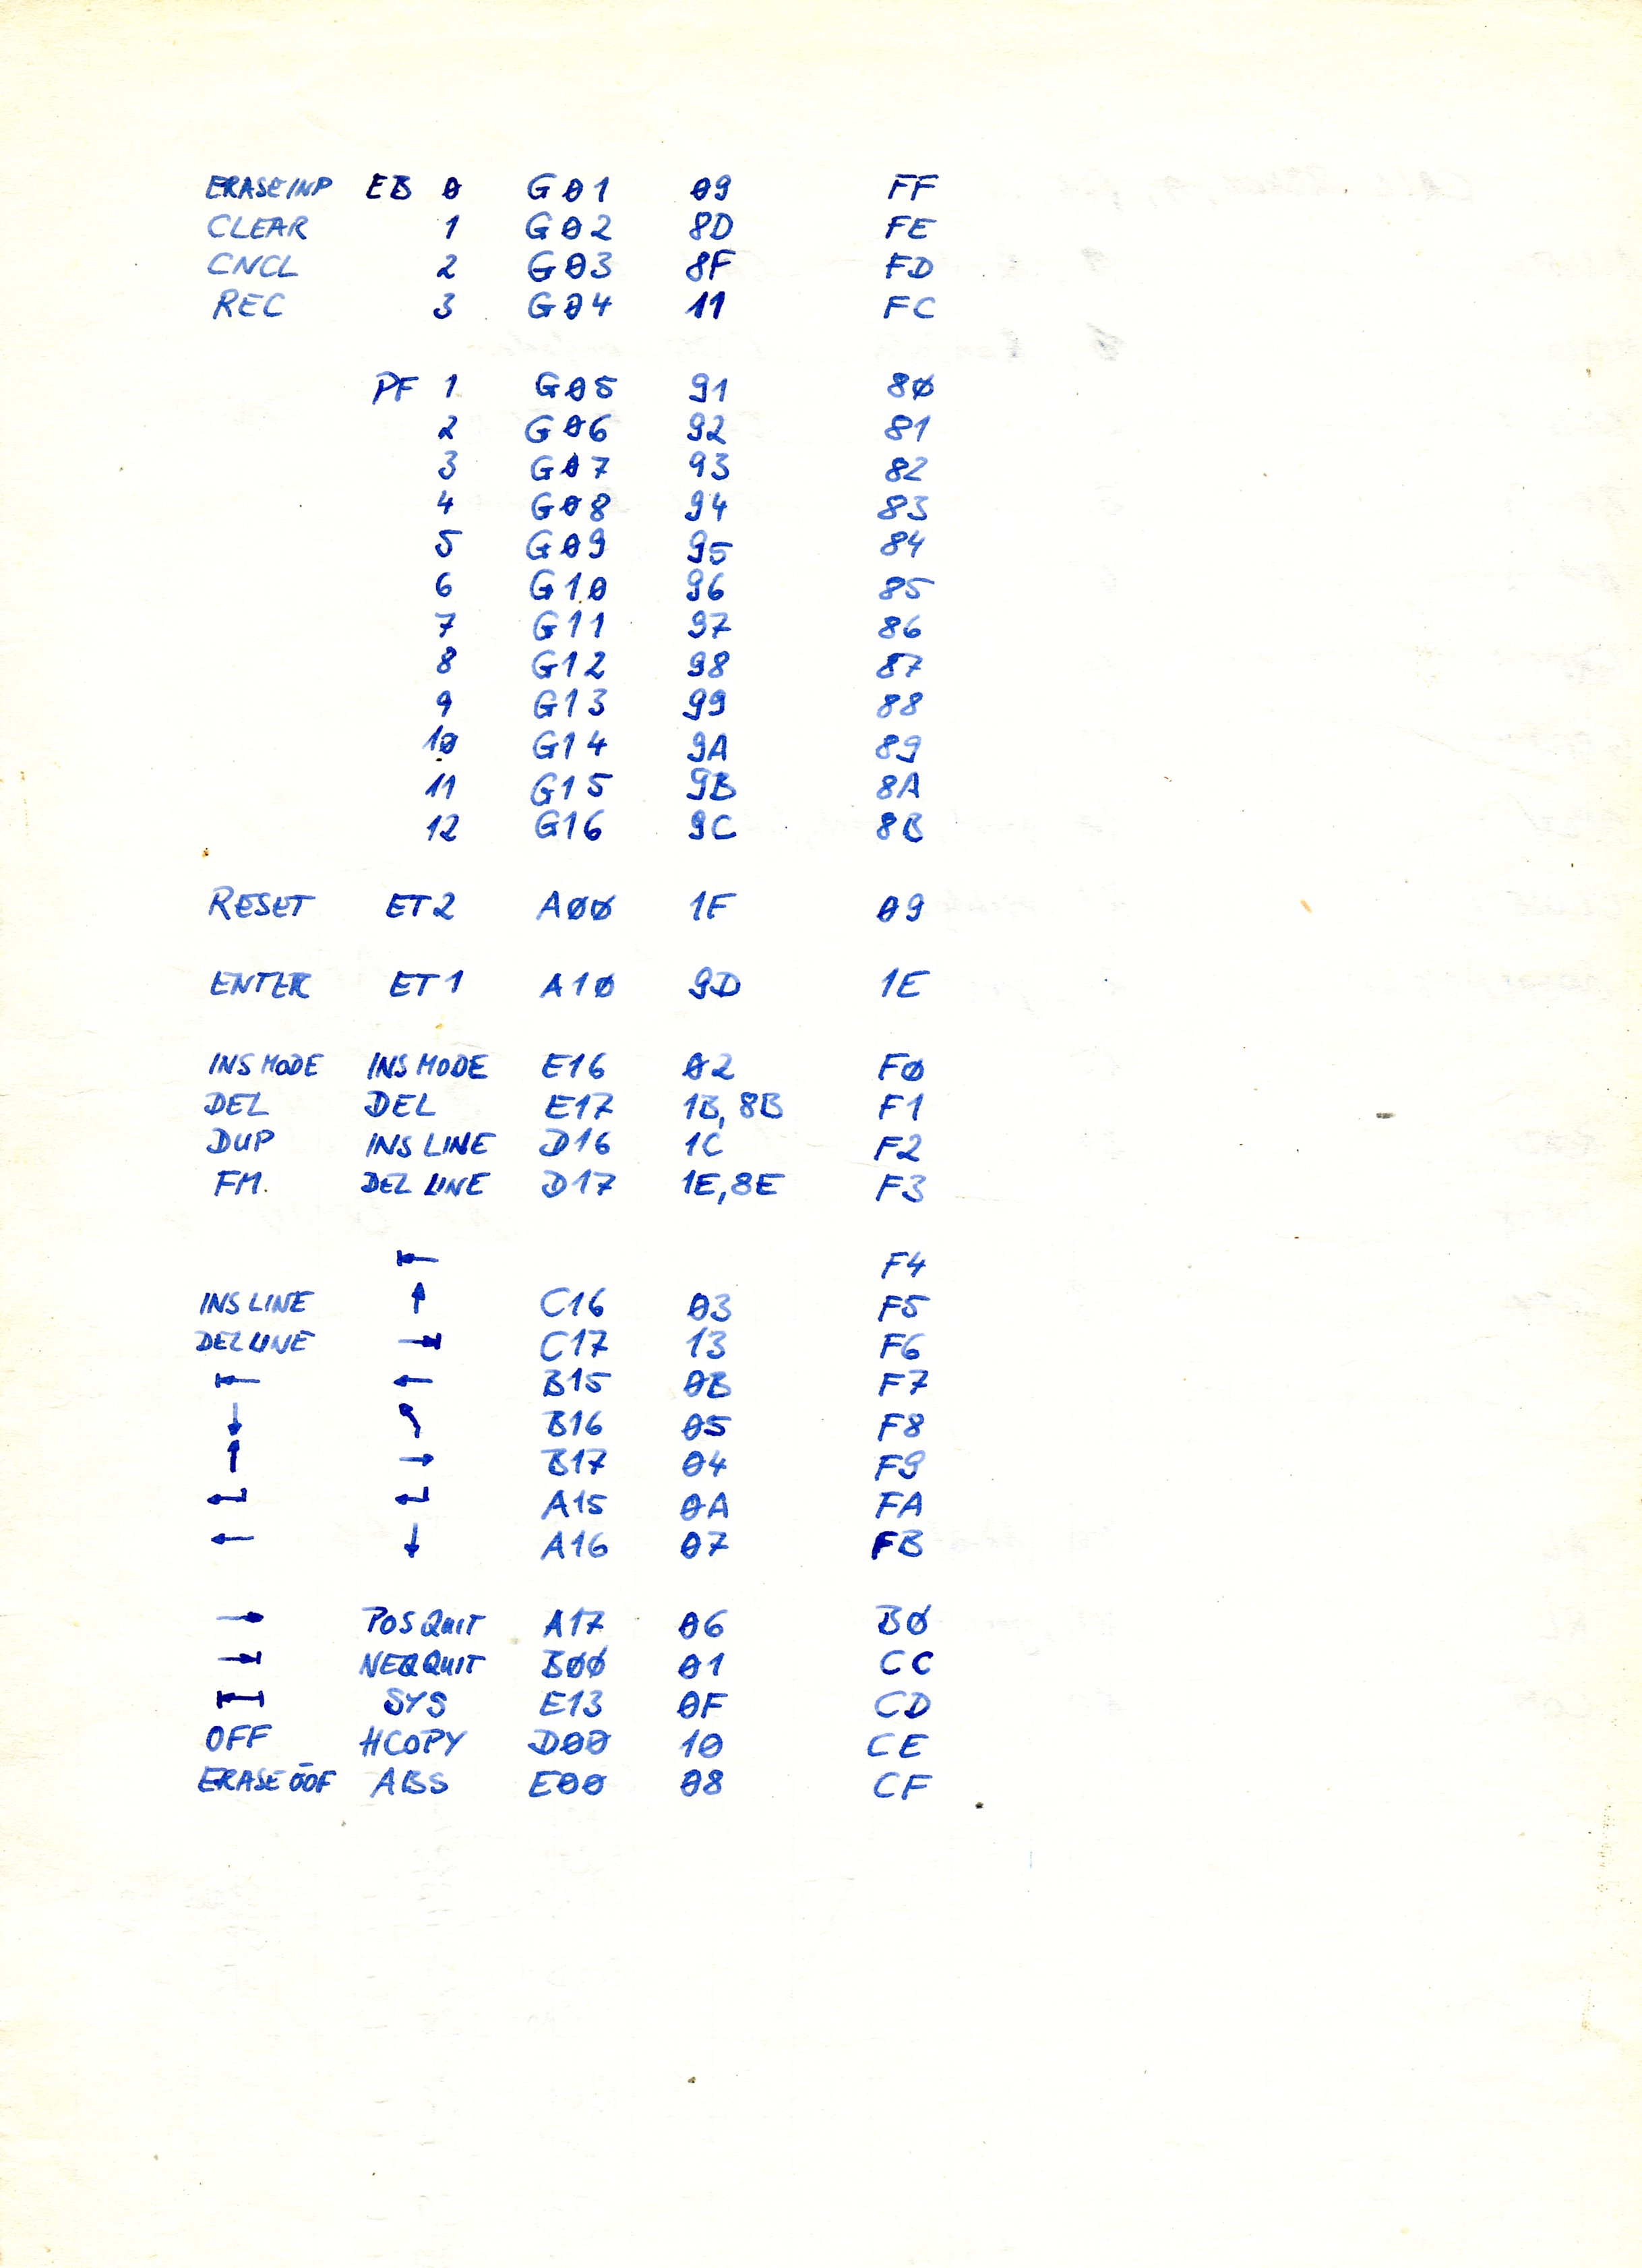 ERASEINP EB 0 G01 09 FF
CLEAR 1 G02 8D FE
CNCL 2 G03 8F FD
REC 3 G04 11 FC
PF 1 G05 91 80
2 G06 92 81
3 G07 93 82
4 G08 94 83
5 G09 95 84
6 G10 96 85
7 G11 97 86
8 G12 98 87
9 G13 99 88
10 G14 9A 89
11 G15 9B 8A
12 G16 9C 8B
RESET ET2 A00 1F 09
ENTER ET1 A10 9D 1E
INS MODE INS MODE E16 02 F0
DEL DEL E17 1B, 8B F1
DUP INS LINE D16 1C F2
FM. DEL LINE D17 1E, 8E F3
⇤ F4
INS LINE ↑ C16 03 F5
DEL LINE ⇥ C17 13 F6
⇤ ← B15 0B F7
↓ ↖ B16 05 F8
↑ → B17 04 F9
↵ ↵ A15 0A FA
← ↓ A16 07 FB
→ POS QUIT A17 06 B0
⇥ NEQ QUIT B00 01 CC
SYS E13 0F CD
OFF HCOPY D00 10 CE
ERASE ABS E00 08 CF